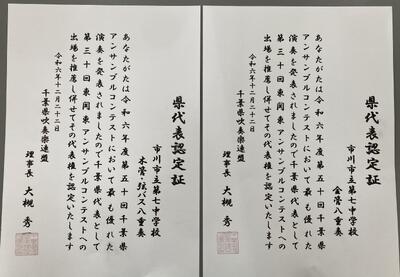 県代表認定証
市川市立第七中学校
木管・弦バス八重奏
あなたがたは令和六年度第五十回千葉県
アンサンブルコンテストにおいて最も優れた
演奏を発表されましたので千葉県代表として
第三十回東関東アンサンブルコンテストへの
出場を推薦し併せてその代表権を認定いたします
令和六年十二月二十二日
千葉県吹奏楽連盟
理事長 大槻 秀一
県代表認定証
市川市立第七中学校
金管八重奏
あなたがたは令和六年度第五十回千葉県
アンサンブルコンテストにおいて最も優れた
演奏を発表されましたので千葉県代表として
第三十回東関東アンサンブルコンテストへの
出場を推薦し併せてその代表権を認定いたします
令和六年十二月二十二日
千葉県吹奏楽連盟
理事長 大槻 秀一